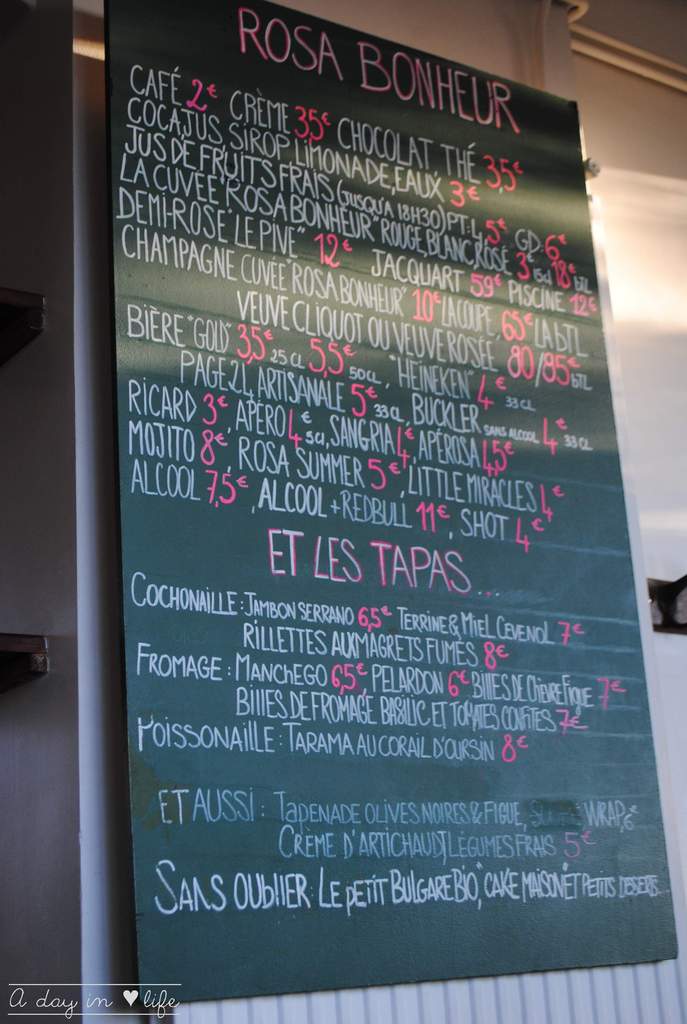 ROSA BONHEUR
CAFÉ 2€ CRÈME 3,5€ CHOCOLAT THÉ 3,5€
COCA, JUS, SIROP, LIMONADE, EAUX 3€
JUS DE FRUITS FRAIS (JUSQU'À 18H30) PT: 5€ GD: 6€
LA CUVÉE "ROSA BONHEUR" ROUGE, BLANC, ROSÉ 3€ 15CL 18€ BTL
DEMI-ROSE "LE PIVE" 12€ JACQUART 59€ PISCINE 12€
CHAMPAGNE CUVÉE "ROSA BONHEUR" 10€ LA COUPE, 65€ LA BTL
VEUVE CLIQUOT OU VEUVE ROSÉE 80/85€ BTL
BIÈRE "GOLD" 3,5€ 25CL 5,5€ 50CL, "HEINEKEN" 4€ 33CL
PAGE 24, ARTISANALE 5€ 33CL, BUCKLER SANS ALCOOL 4€ 33CL
RICARD 3€, APÉRO 4€ 5CL, SANGRIA 4€, APÉROSA 4,5€
MOJITO 8€, ROSA SUMMER 5€, LITTLE MIRACLES 4€
ALCOOL 7,5€, ALCOOL + REDBULL 11€, SHOT 4€
ET LES TAPAS...
COCHONAILLE : JAMBON SERRANO 6,5€ TERRINE & MIEL CEVENOL 7€
RILLETTES AUX MAGRETS FUMÉS 8€
FROMAGE : MANCHEGO 6,5€, PELARDON 6€ BILLES DE CHÈVRE FIGUE 7€
BILLES DE FROMAGE BASILIC ET TOMATES CONFITES 7€
POISSONAILLE : TARAMA AU CORAIL D'OURSIN 8€
ET AUSSI : TAPENADE OLIVES NOIRES & FIGUE, WRAP, 6€
CRÈME D'ARTICHAUD, LÉGUMES FRAIS 5€
SANS OUBLIER : LE PETIT BULGARE BIO, "CAKE MAISON" ET PETITS DESSERTS...
A day in ♥ life